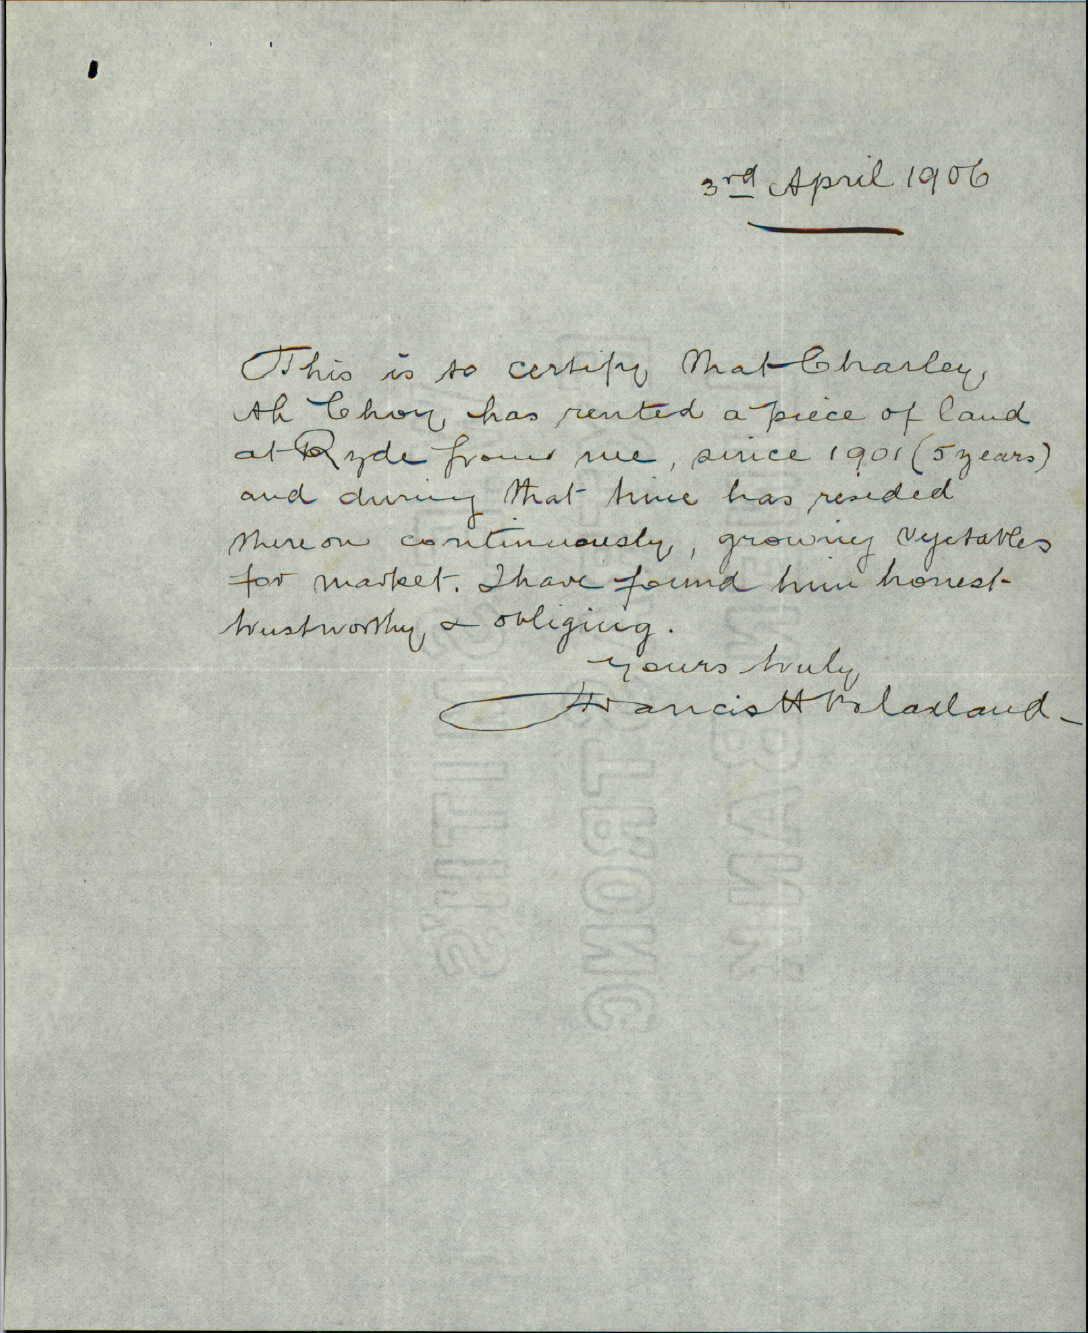 3rd April 1906
This is to certify that Charley
Ah Choy has rented a piece of land
at Ryde from me, since 1901 (5 years)
and during that time has resided
thereon continuously, growing vegetables
for market. I have found him honest
trustworthy & obliging.
Yours truly
Francis H Blaxland